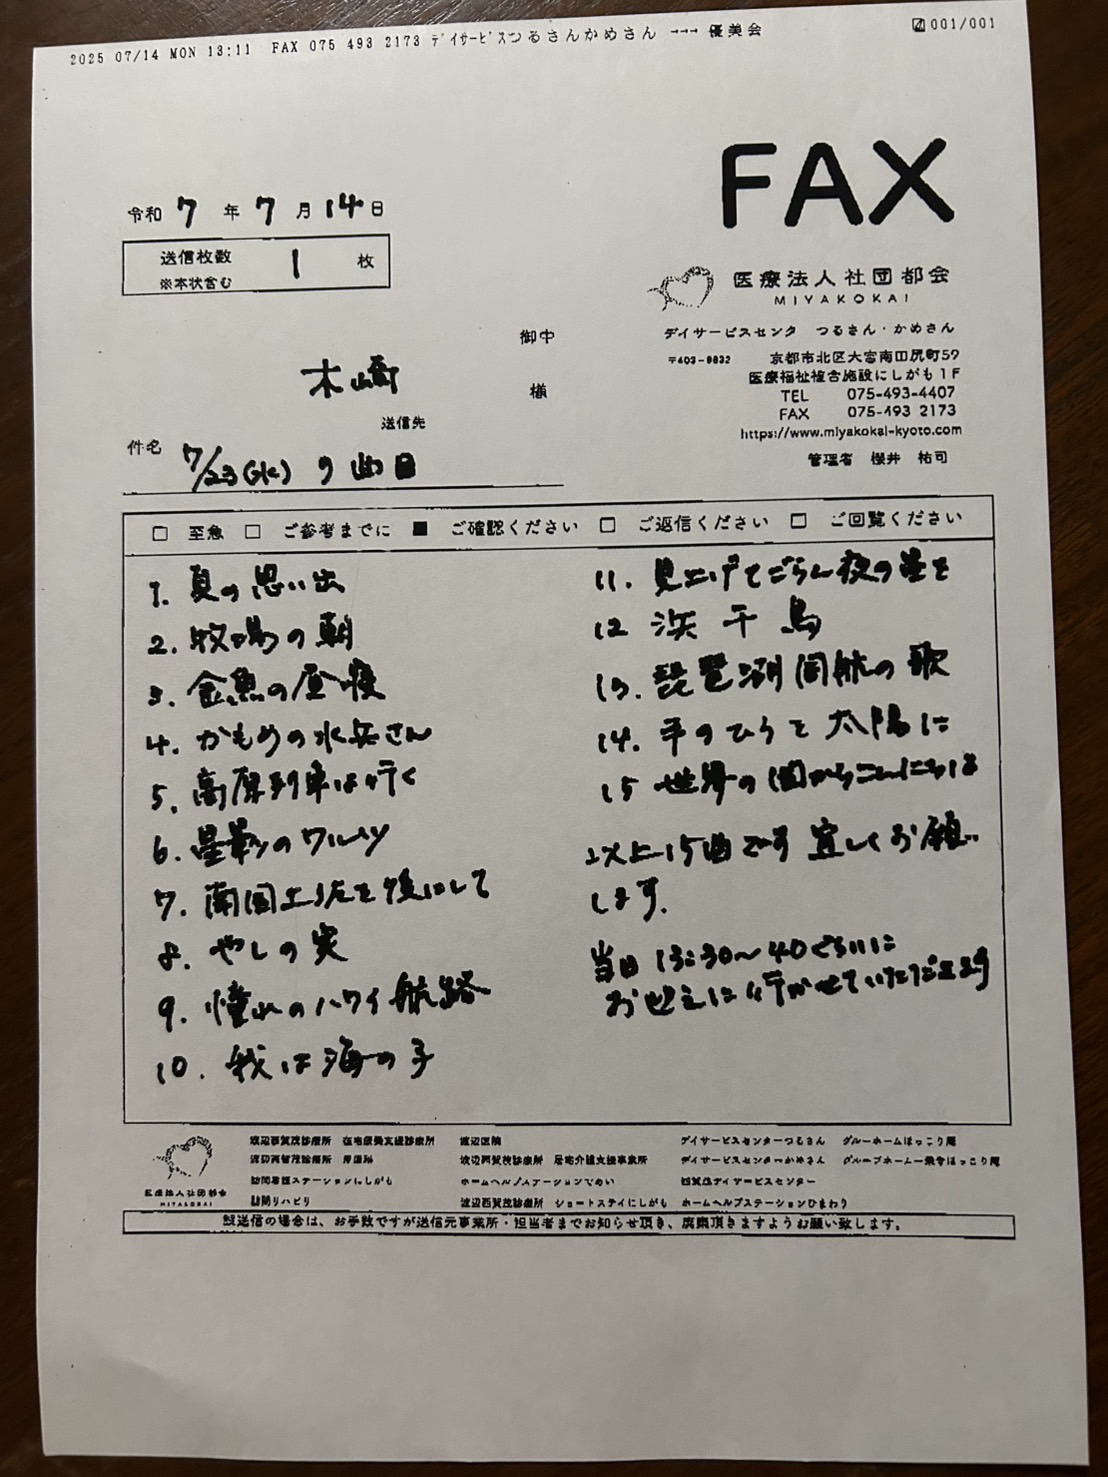 2025 07/14 MON 13:11 FAX 075 493 2173 デイサービスつるさんかめさん →→→ 優美会 001/001
FAX
令和 7 年 7 月 14 日
送信枚数 1 枚
※本状含む
医療法人社団都会
MIYAKOKAI
デイサービスセンタ つるさん・かめさん
〒603-8832 京都市北区大宮南田尻町59
医療福祉複合施設にしがも1F
TEL 075-493-4407
FAX 075-493 2173
https://www.miyakokai-kyoto.com
管理者 櫻井 祐司
御中
木崎 様
送信先
件名 7/23(水) の曲目
□ 至急 □ ご参考までに ■ ご確認ください □ ご返信ください □ ご回覧ください
1. 夏の思い出
2. 牧場の朝
3. 金魚の昼寝
4. かもめの水兵さん
5. 高原列車は行く
6. 星影のワルツ
7. 南国土佐を後にして
8. やしの実
9. 憧れのハワイ航路
10. 我は海の子
11. 見上げてごらん夜の星を
12 浜千鳥
13. 琵琶湖周航の歌
14. 手のひらを太陽に
15 世界の国からこんにちは
以上15曲です 宜しくお願い
します。
当日 13:30〜40ぐらいに
お迎えに行かせていただきます
医療法人社団都会
MIYAKOKAI
渡辺西賀茂診療所 在宅療養支援診療所
渡辺西賀茂診療所
訪問看護ステーションにしがも
訪問リハビリ
渡辺医院
渡辺西賀茂診療所 居宅介護支援事業所
ホームヘルプステーション
渡辺西賀茂診療所 ショートステイにしがも
デイサービスセンターつるさん グループホームほっこり庵
デイサービスセンターかめさん グループホーム一乗寺ほっこり庵
西賀茂デイサービスセンター
ホームヘルプステーションひまわり
誤送信の場合は、お手数ですが送信元事業所・担当者までお知らせ頂き、廃棄頂きますようお願い致します。